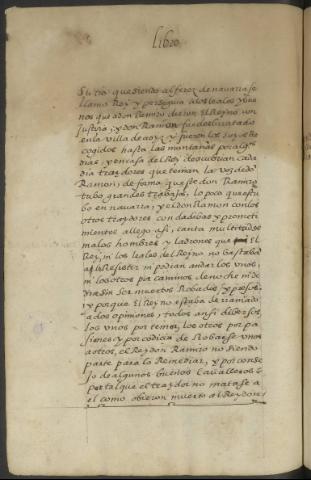 libro
su tio que diendo alferez de navarra se
llamo Rey y perseguia a los leales y bue
nos que a don Ramiro dieron el Reyno con
Justicia, y don Ramon fue desbaratado
en la villa de y fueron los suyos Re
cogidos hasta las montañas por alg
dias, y en casa del Rey descubrian cada
dia traydores que tenian la voz de do
Ramon, de forma que este don Ramiro
tubo grandes trabajos, lo poco que estu
bo en navarra, y el don Ramon con los
otros traydores con dadibas y prometi
mientos allego a si, tanta multitud de
malos hombres y ladrones que el
Rey, ni los leales del Reyno no bastaba
a les Resistir ni podian andar los unos,
ni los otros por caminos de noche ni de
dia sin ser muertos Robados y presos,
y porque el Reyno estaba derramado
a dos opiniones, todos ansi diversos
los unos por temor, los otros por pa
siones y por codicia de Robarse unos
a otros, el Rey don Ramiro no siendo
parte para lo Remediar, y por conse
jo de algunos buenos cavalleros
por tal que el traydor no matase a
el como obieron muerto al Rey don